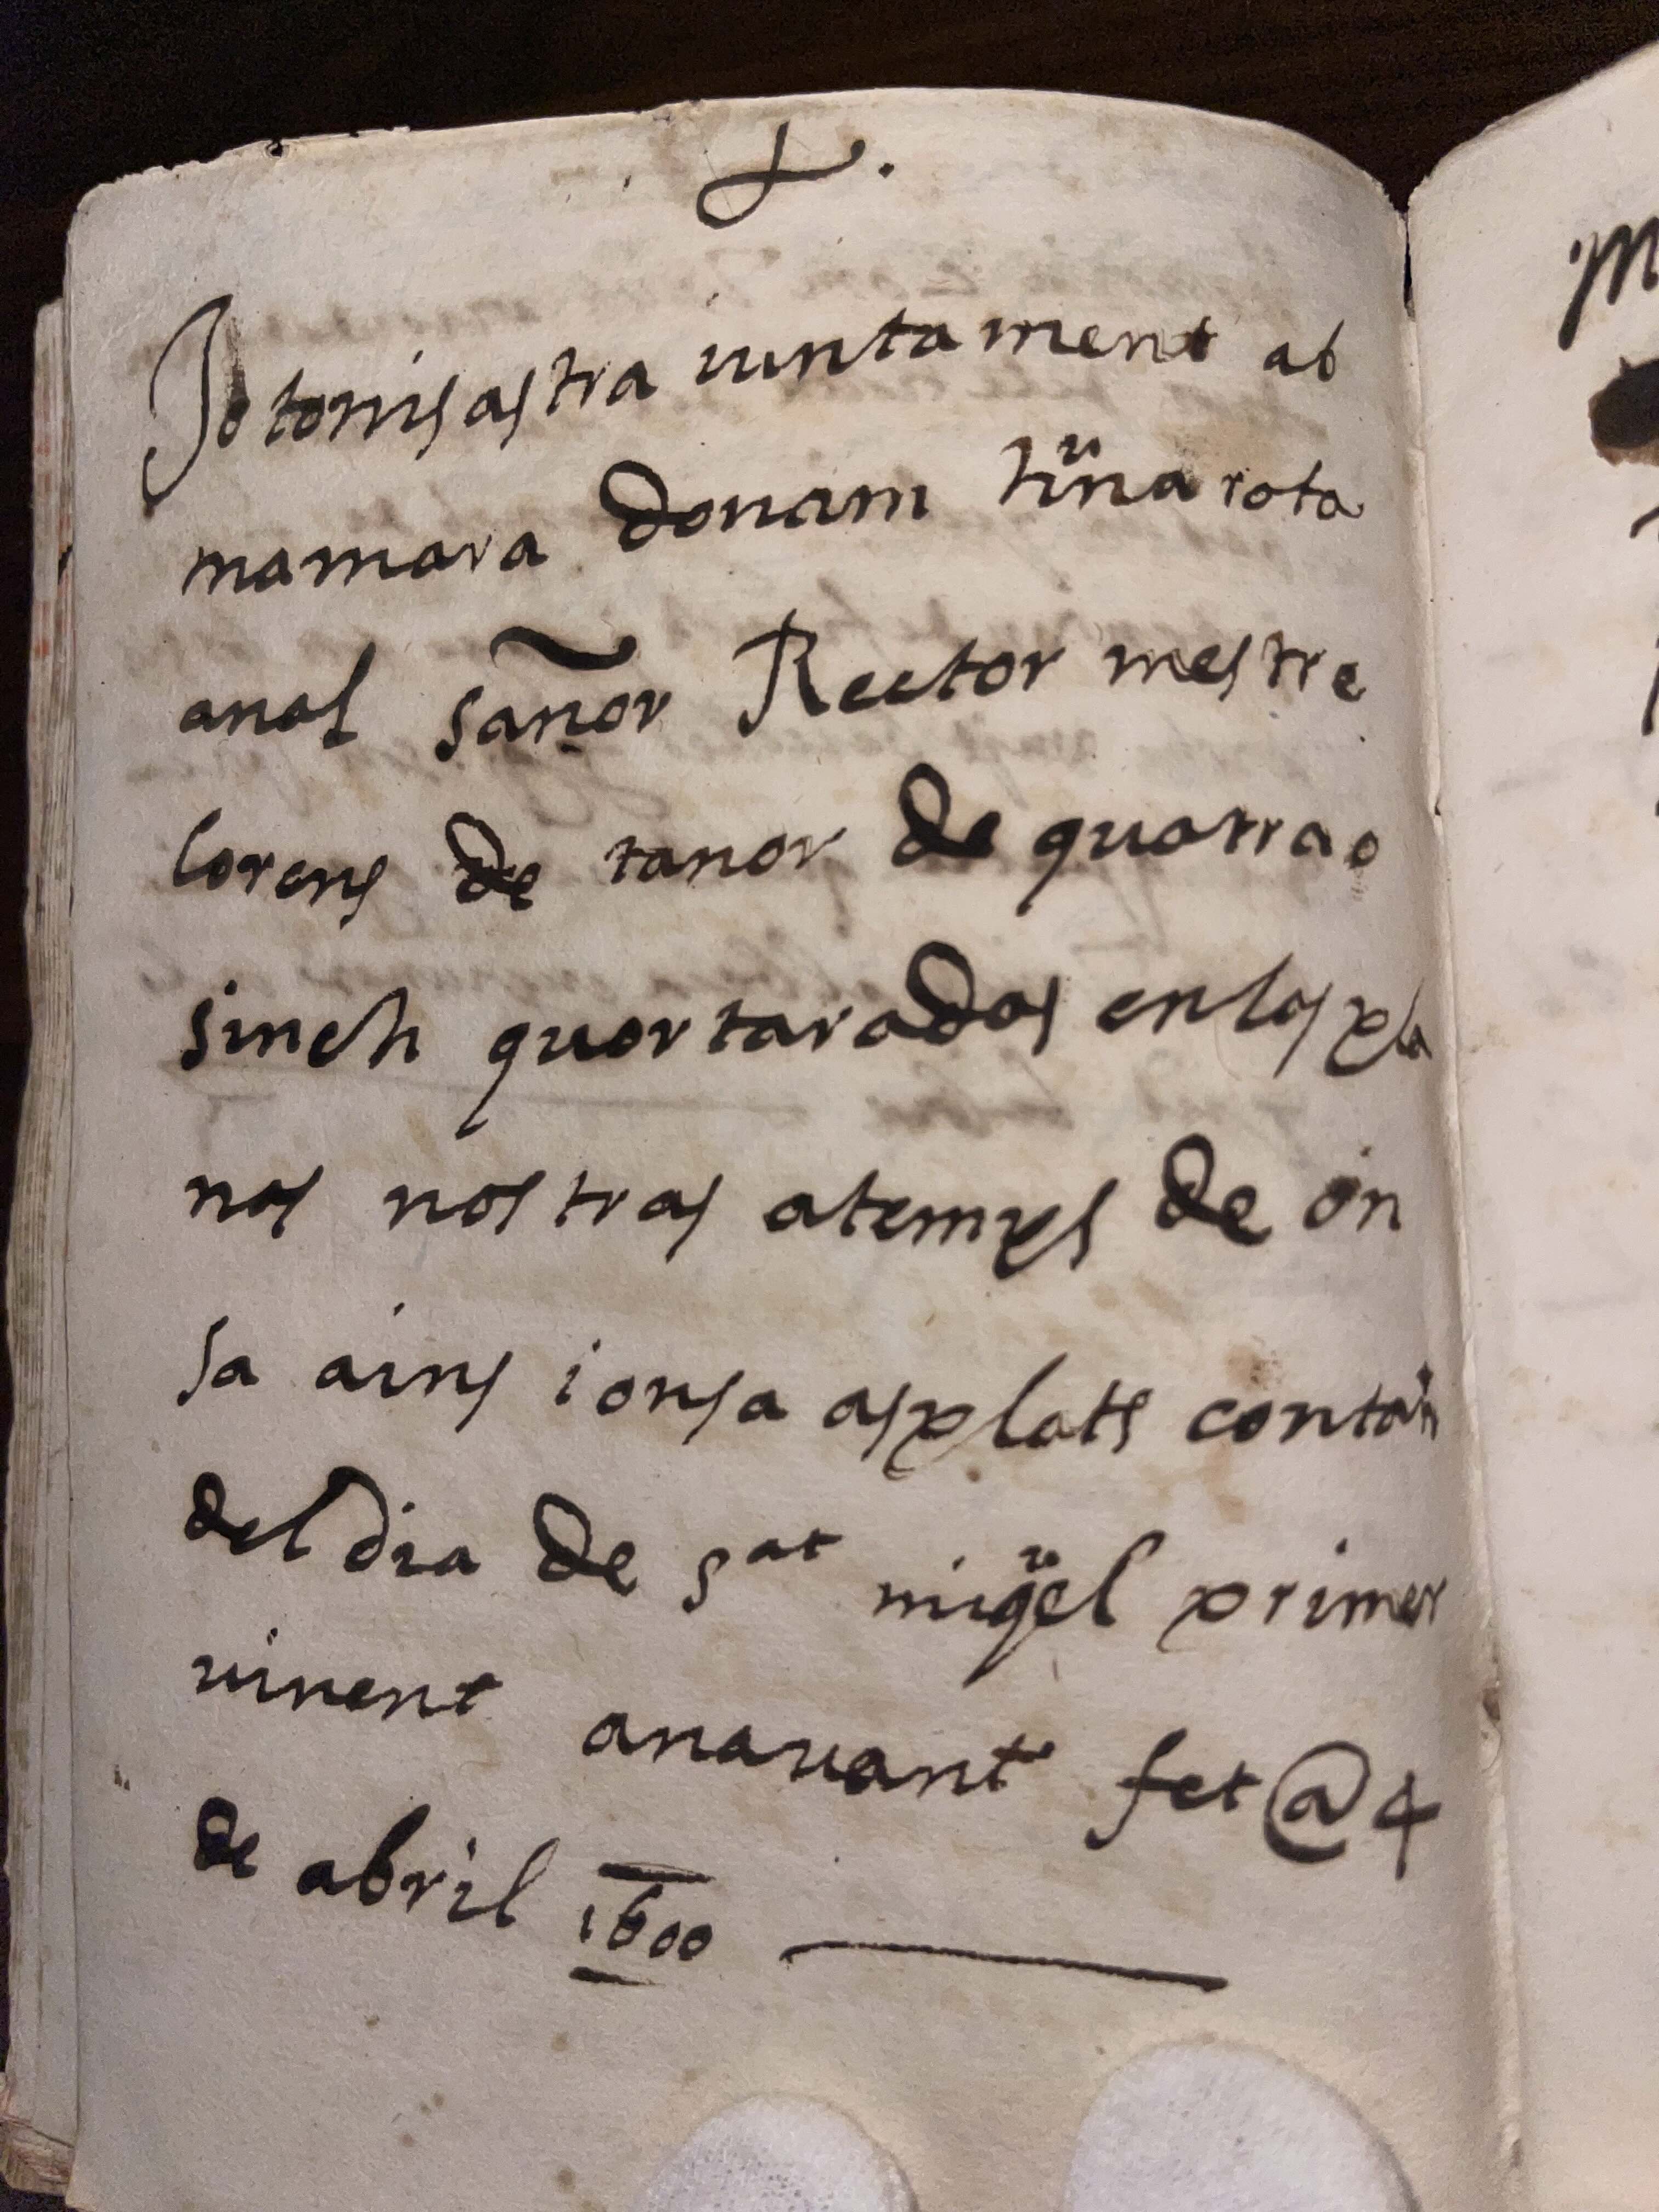 Jo tonisastra iuntament ab
mamara donam hüna rota
anal sañor Rector mestre
lorens de tanor de quatra o
sinch quortarados enlas pla
nas nostras atemps de on
sa ains i onsa asplats contan
del dia de sat migel primer
uinent anauant fet @ 4
de abril 1600